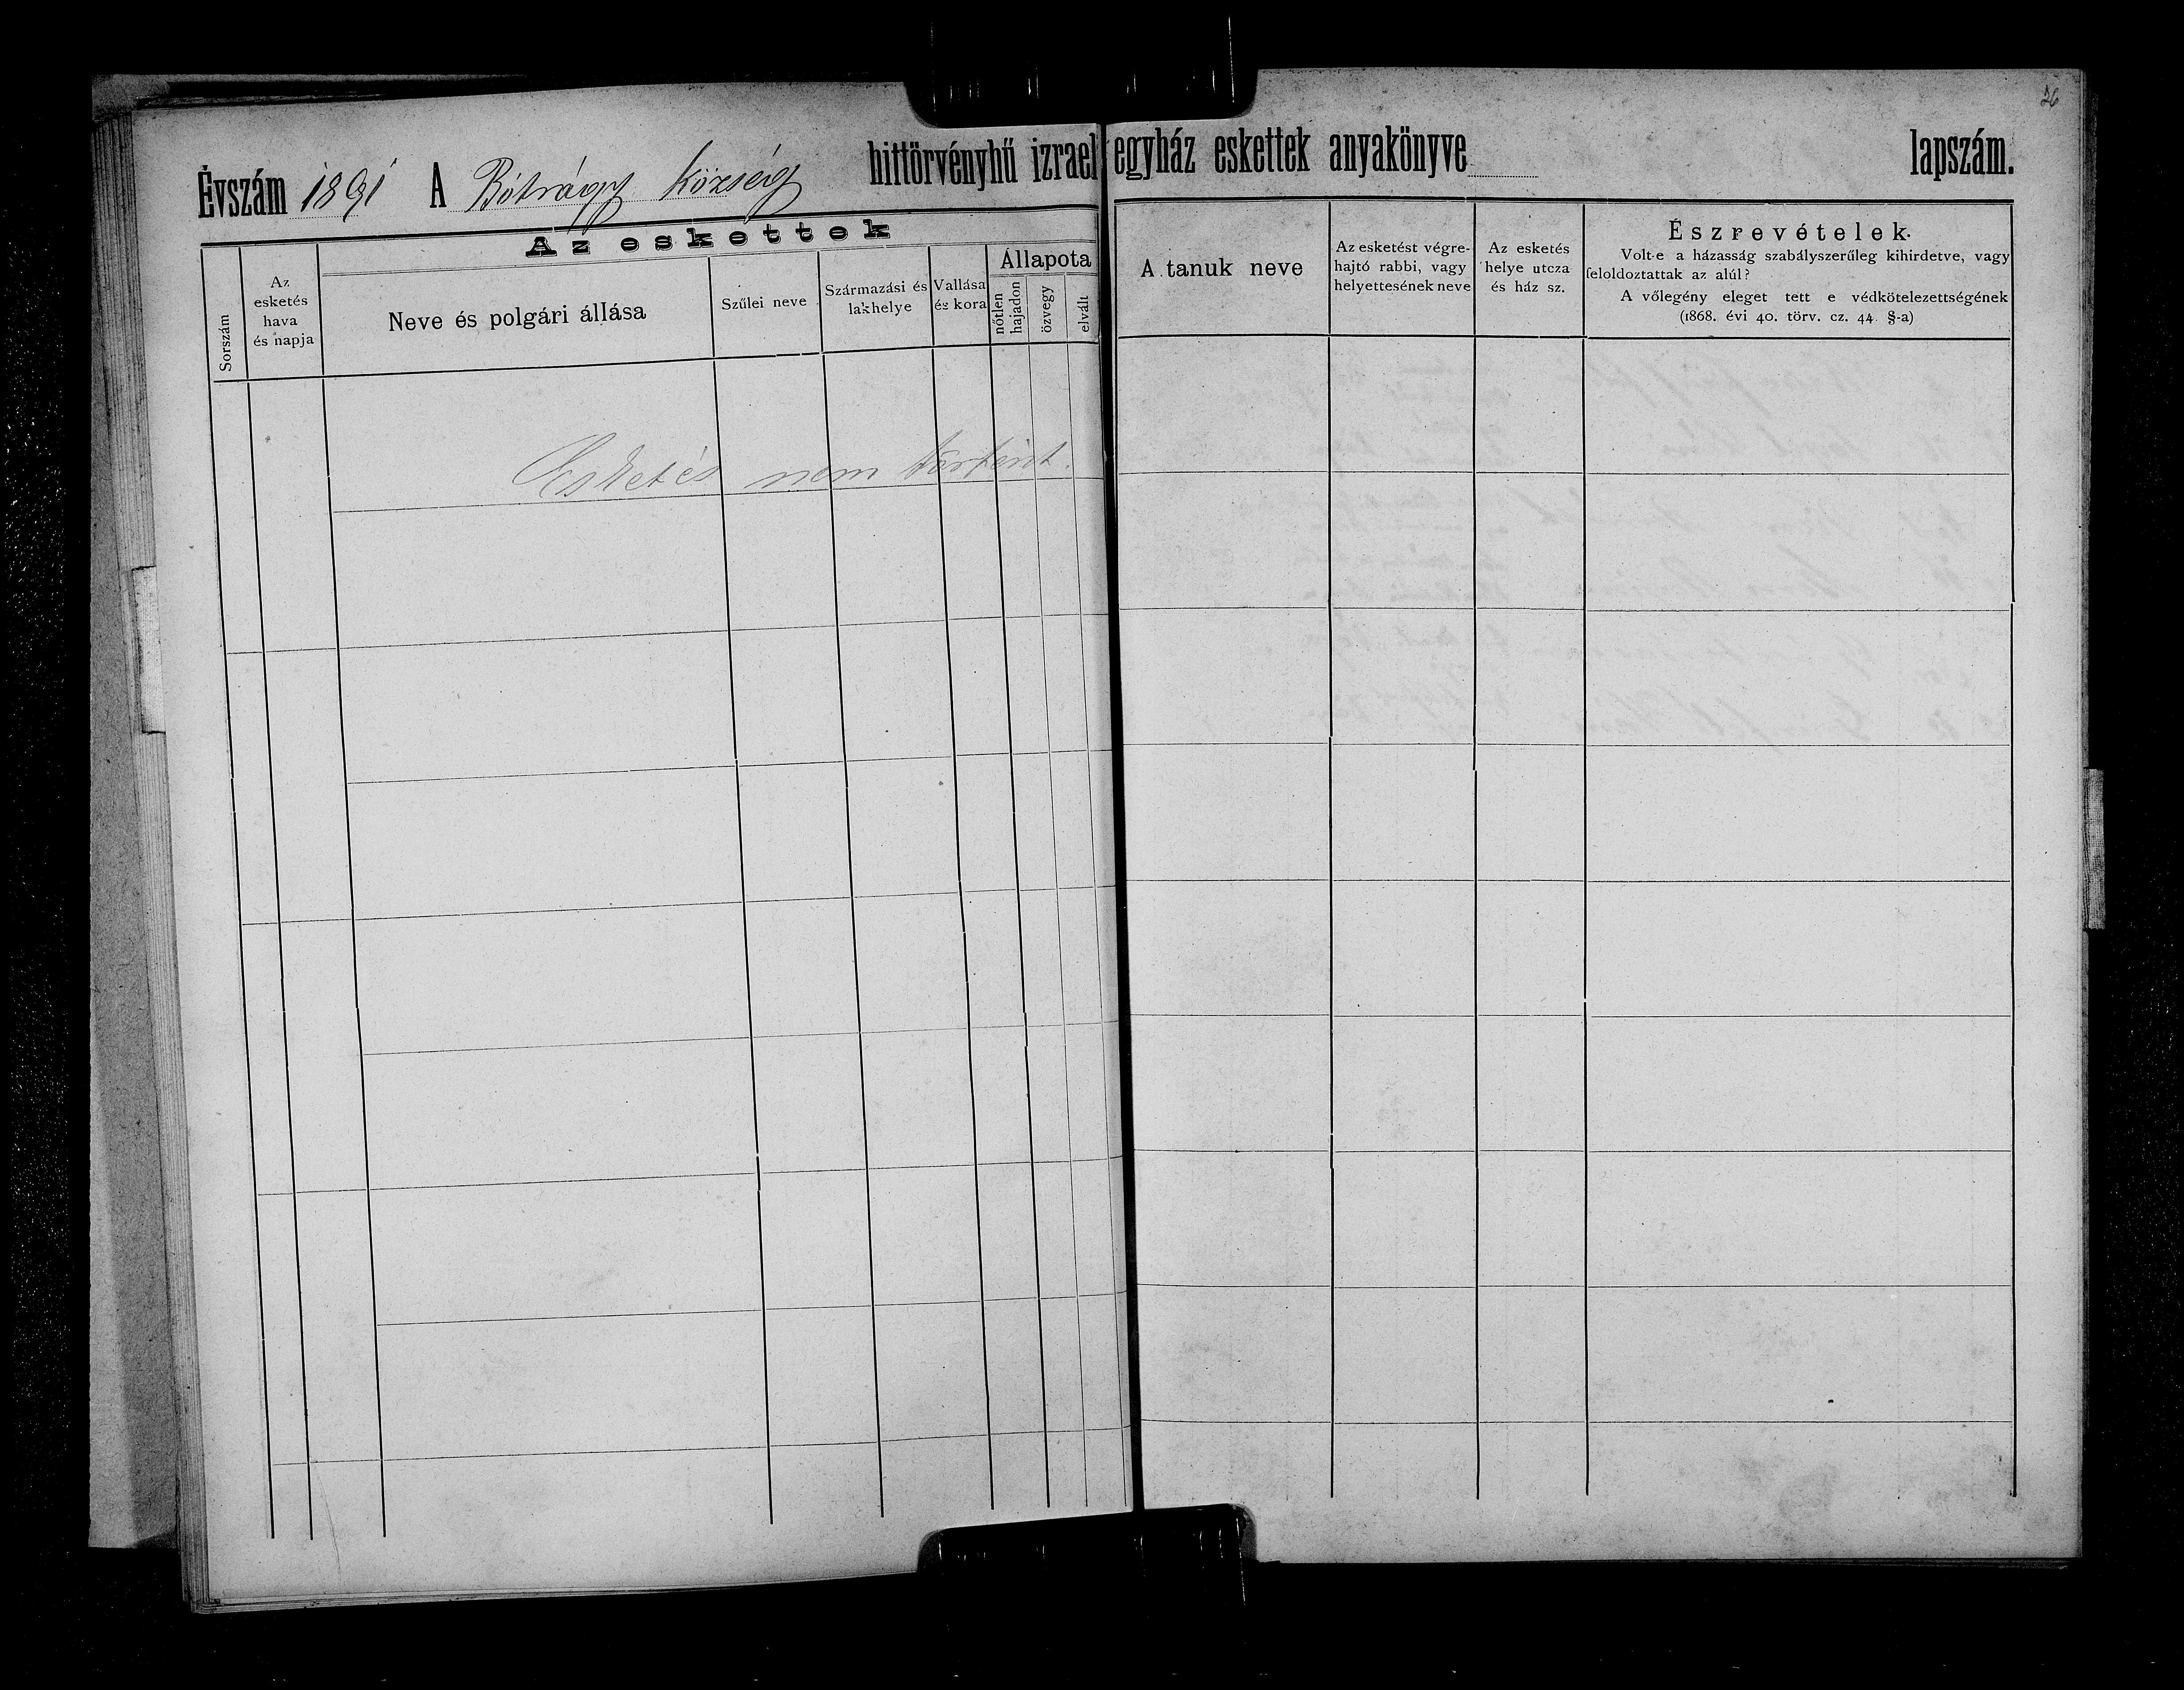 26
Évszám 1891 A Bótrágy Község hittörvényhű izrael egyház eskettek anyakönyve lapszám.
Az eskettek
Sorszám
Az
esketés
hava
és napja
Neve és polgári állása
Szűlei neve
Származási és
lakhelye
Vallása
és kora
Állapota
nőtlen
hajadon
özvegy
elvált
A tanuk neve
Az esketést végre-
hajtó rabbi, vagy
helyettesének neve
Az esketés
helye utcza
és ház sz.
Észrevételek.
Volt-e a házasság szabályszerűleg kihirdetve, vagy
feloldoztattak az alúl?
A vőlegény eleget tett e védkötelezettségének
(1868. évi 40. törv. cz. 44. §-a)
Esketés nem történt.